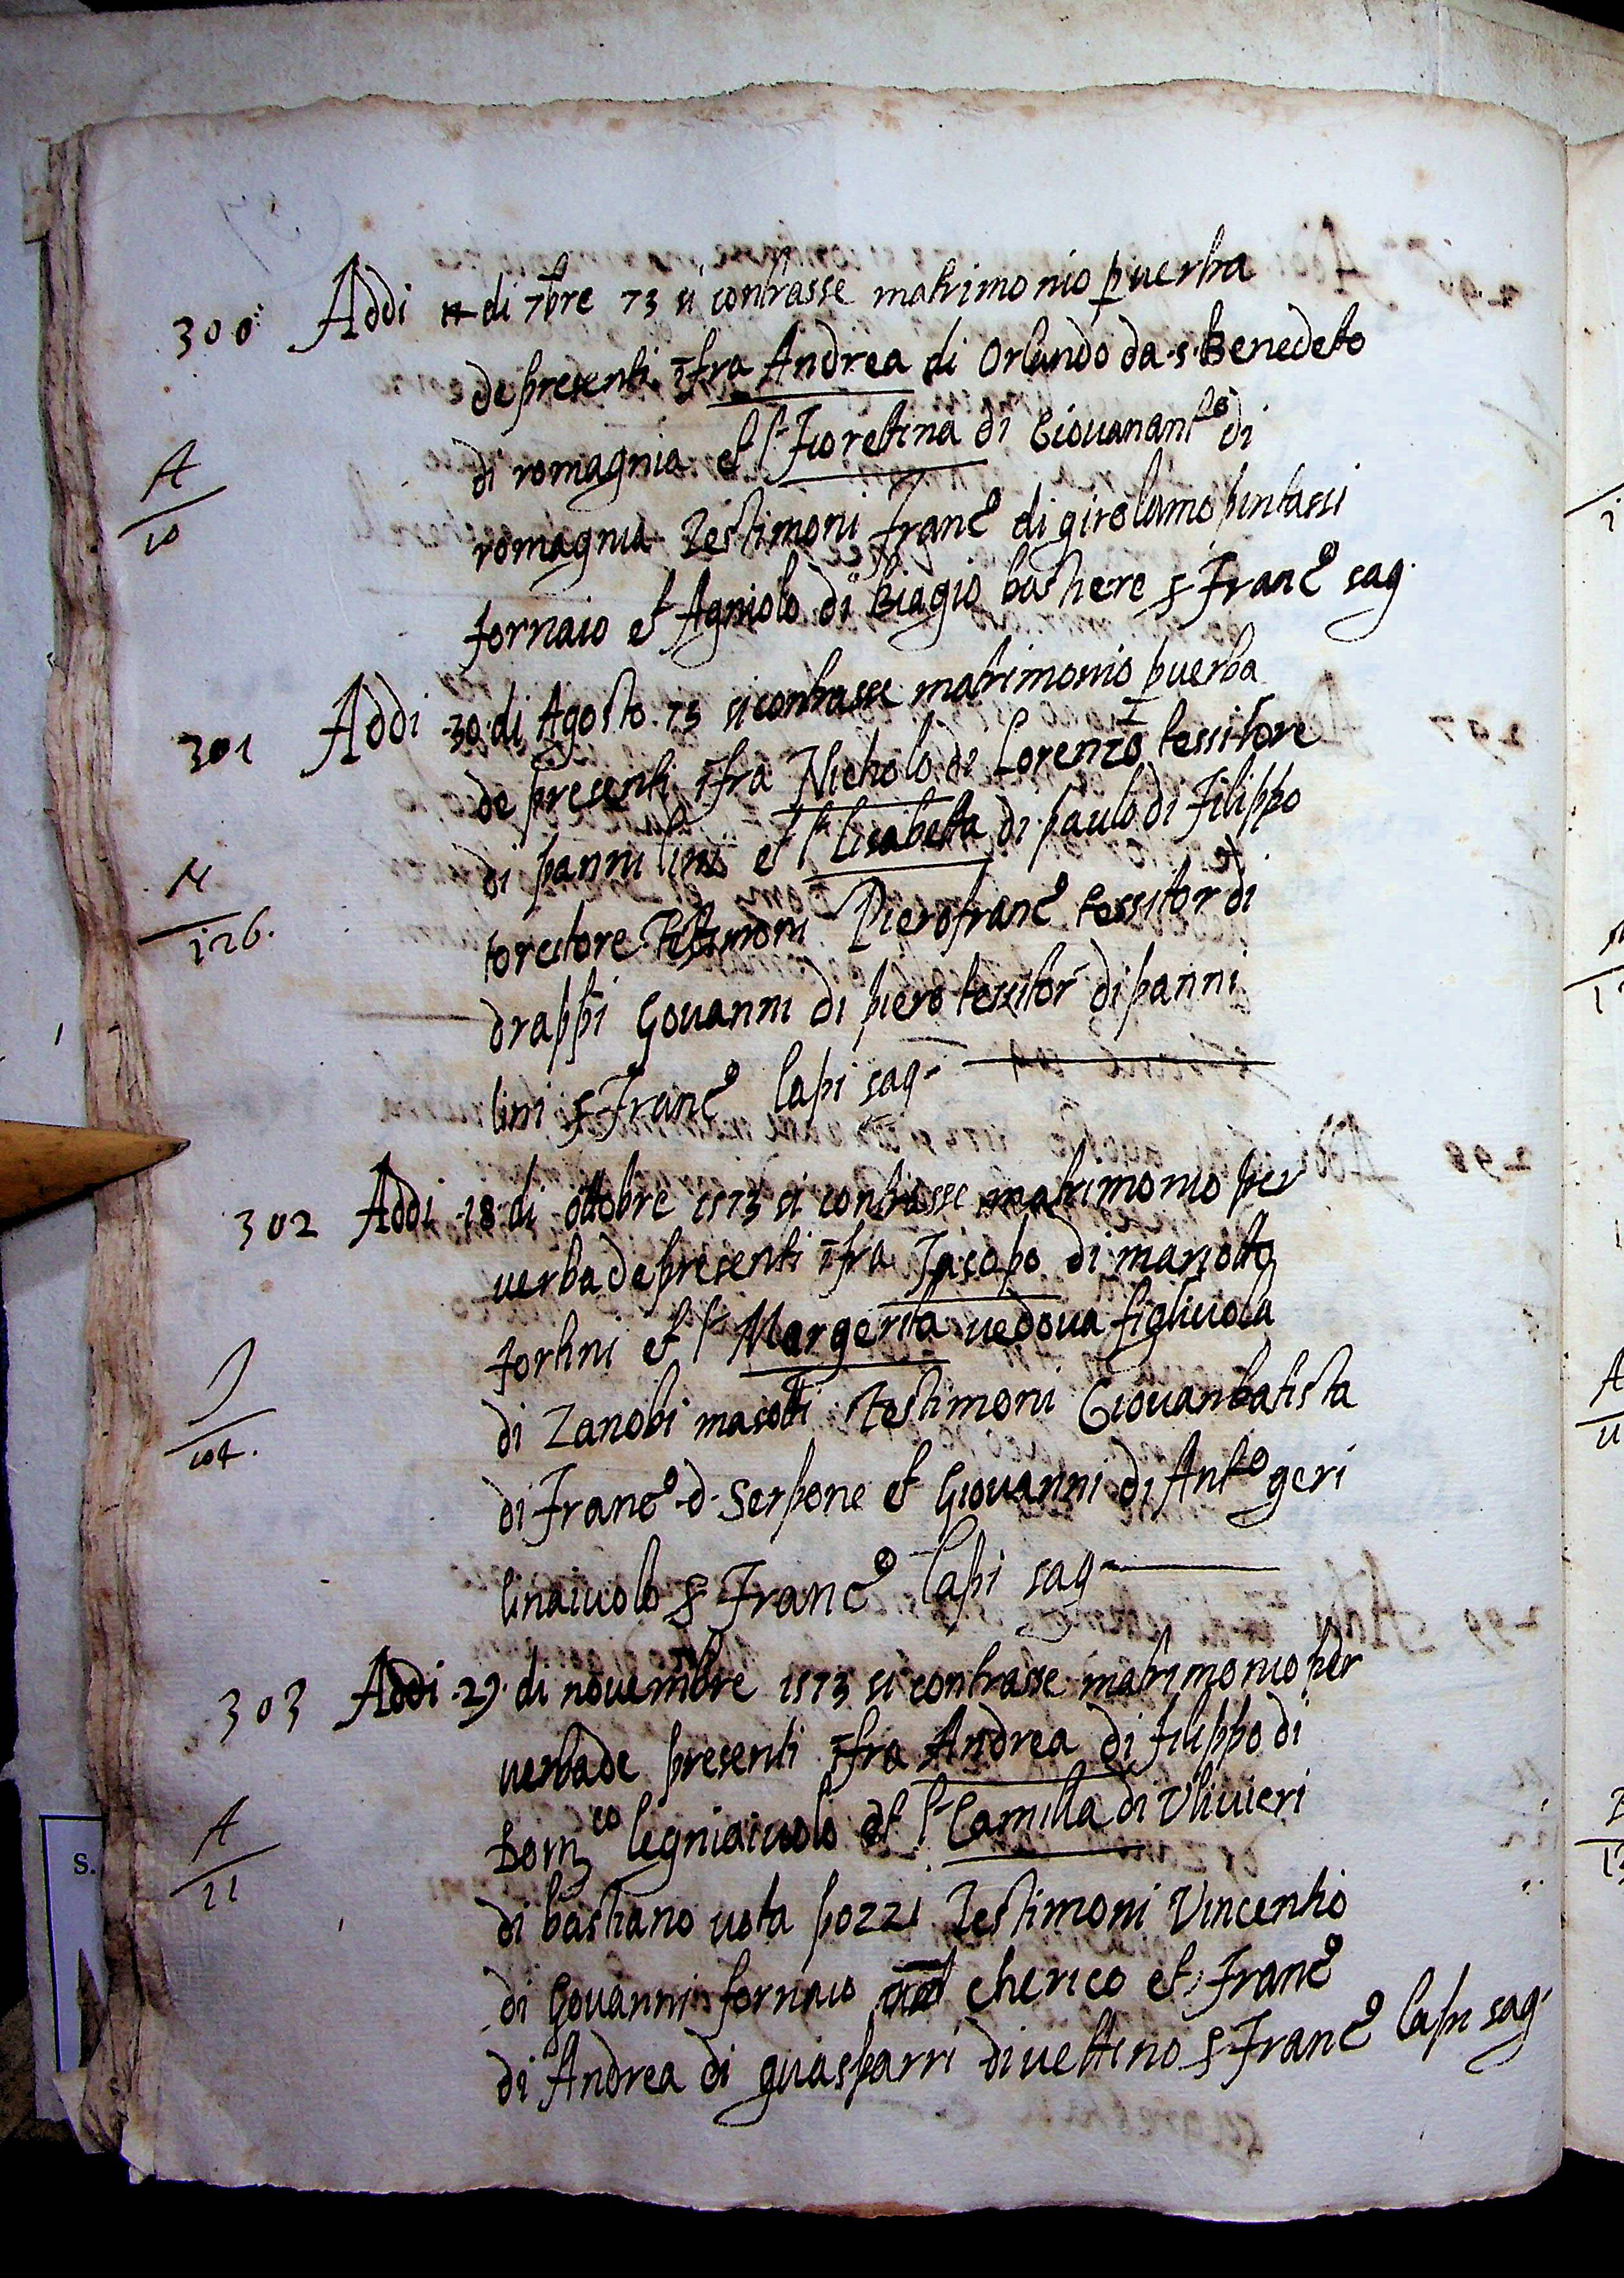 300 Addi di 7bre 73 si contrasse matrimonio p verba
de presenti ĩfra Andrea di Orlando da s. Benedeto
di romagnia et la Fioretina di Giovanantº di
A
10
romagnia Testimoni Francº di girolamo pintassi
fornaio et Agniolo di Biagio bastiere Francº sag.
301 Addi .30. di Agosto 73 si contrasse matrimonio p verba
de presenti ĩfra Nicholo di Lorenzo tessitore
di panni lini et la Lisabetta di paulo di Filippo
N
126.
torcitore Testimoni Pierofrancº tessitor di
drappi Govanni di piero tessitor di panni
lini Francº Lapi sag.
302 Addi .18. di ottobre 1573 si contrasse matrimonio per
verba de presenti ĩfra Jacopo di mariotto
fortini et la Margerita vedova figlivola
J
104.
di Zanobi masotti Testimoni Giovanbatista
di Francº d. Serpone et Giovanni di Antº geri
linaiuolo Francº Lapi sag.
303 Addi .29. di novembre 1573 si contrasse matrimonio per
verba de presenti ĩfra Andrea di Filippo di
Domco legniaiuolo et la Camilla di Ulivieri
A
11
di bastiano vota pozzi Testimoni Vincentio
di Govanni fornaio cherico et Francº
di Andrea di guasparri divettino Francº Lapi sag.